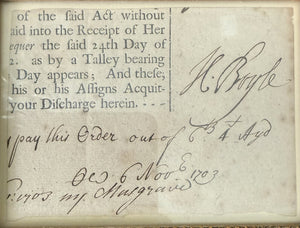 of the said Act without
aid into the Receipt of Her
equer the said 24th Day of
2. as by a Talley bearing
Day appears; And these,
his or his Assigns Acquit-
your Discharge herein. ---
H. Boyle
pay this Order out of 6th 4
6 Novb 1703
my Musgrave